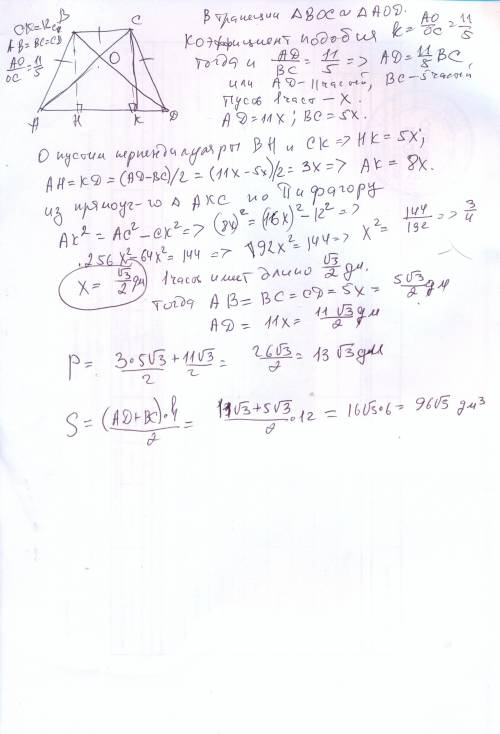 B
C
A
H
K
D
O
AB=BC=CD
AO/OC = 11/5
В трапеции ΔBOC ~ ΔAOD.
Коэффициент подобия k = AO/OC = 11/5
тогда и AD/BC = 11/5 => AD = 11/5 BC,
или AD-11 частей, BC-5 частей
Пусть 1 часть - X.
AD=11X; BC=5X.
Опустим перпендикуляры BH и CK => HK=5X;
AH=KD=(AD-BC)/2 = (11X-5X)/2 = 3X => AK=8X.
из прямоуг-го Δ AKC по Пифагору
AK² = AC² - CK² => (8X)² = (16X)² - 12² =>
256X² - 64X² = 144 => 192X² = 144 => X² = 144/192 => 3/4
X = √3/2 дм 1 часть имеет длину √3/2 дм.
тогда AB=BC=CD=5X = 5√3/2 дм
AD = 11X = 11√3/2 дм
P = 3·5√3/2 + 11√3/2 = 26√3/2 = 13√3 дм
S = (AD+BC)·h/2 = 11√3+5√3/2 ·12 = 16√3·6 = 96√3 дм³